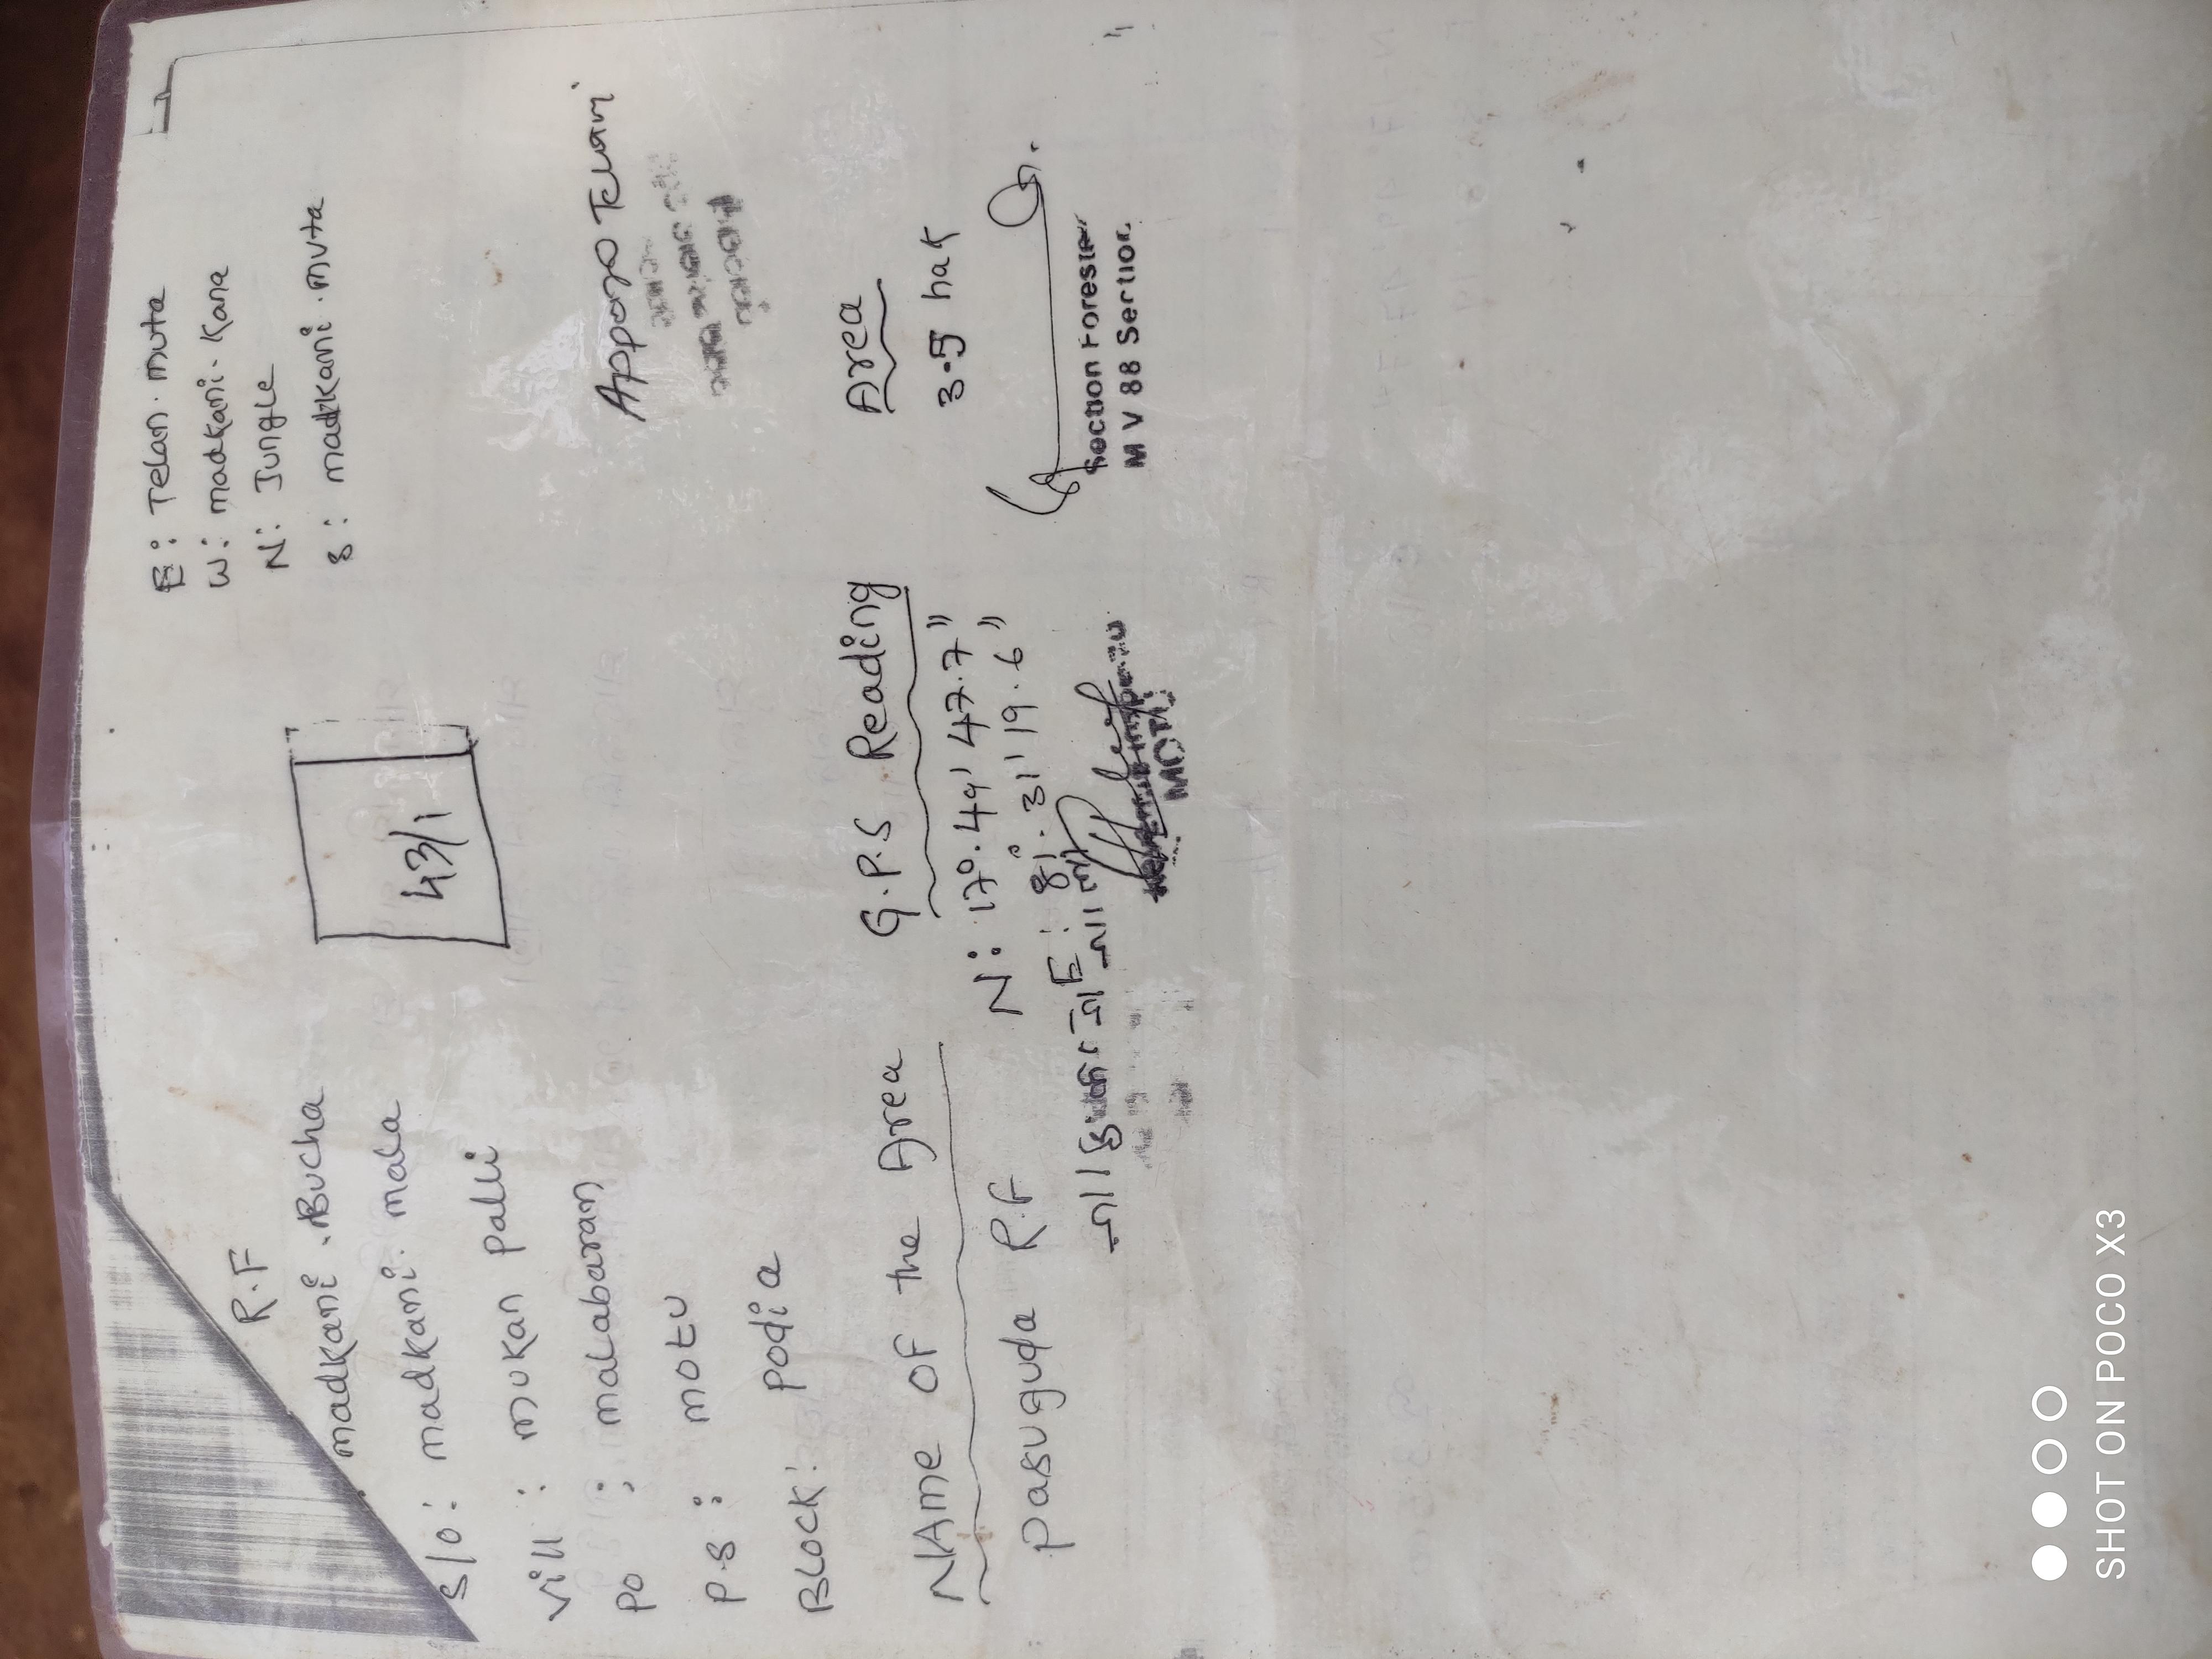 R.F
madkami . Bucha
S/o : madkami . mala
Vill : mukan palli
Po : malabaram
P.S : motu
BLOCK : podia
43/1
E : Telam . muta
W : madkami . Kana
N : Jungle
S : madkami . muta
Apporao Telami
NAme OF the Area
Pasuguda R.F
G.P.S Reading
N : 17°. 49' 47.7"
E : 81°. 31' 19.6"
Area
3.5 hak
Section Forester
M V 88 Section
MOTU
SHOT ON POCO X3